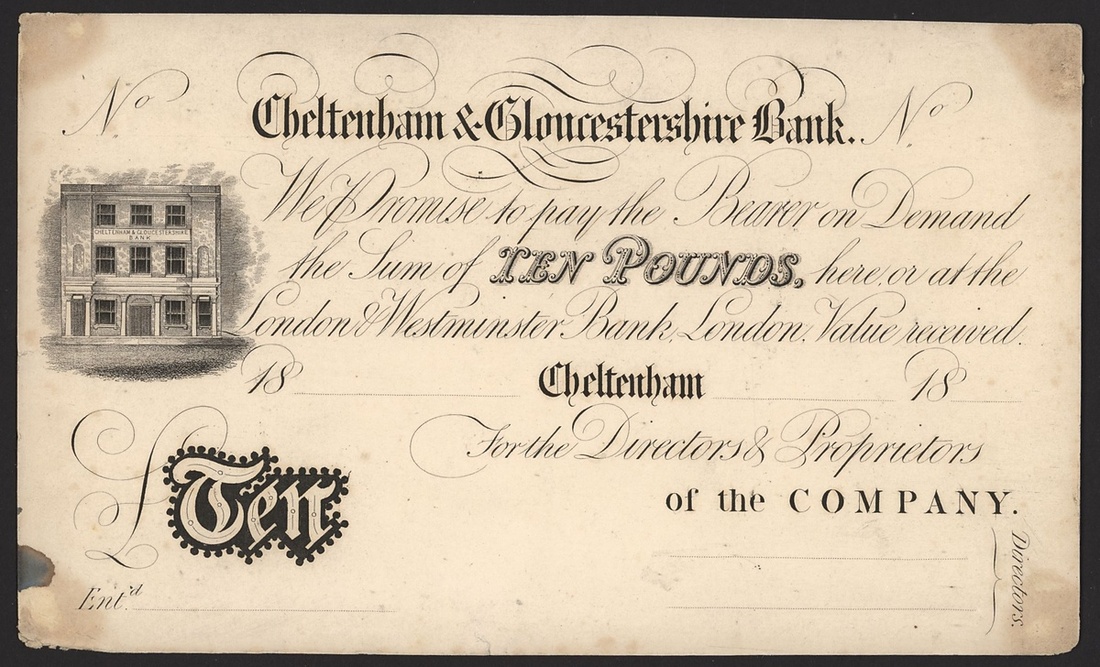 No Cheltenham & Gloucestershire Bank. No
CHELTENHAM & GLOUCESTERSHIRE
BANK
We Promise to pay the Bearer on Demand
the Sum of TEN POUNDS, here or at the
London & Westminster Bank, London. Value received.
18 Cheltenham 18
For the Directors & Proprietors
of the COMPANY.
£ Ten
Directors.
Entd